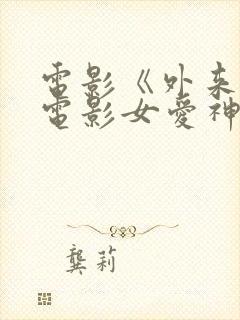 電影《外来
電影女愛神
龔莉